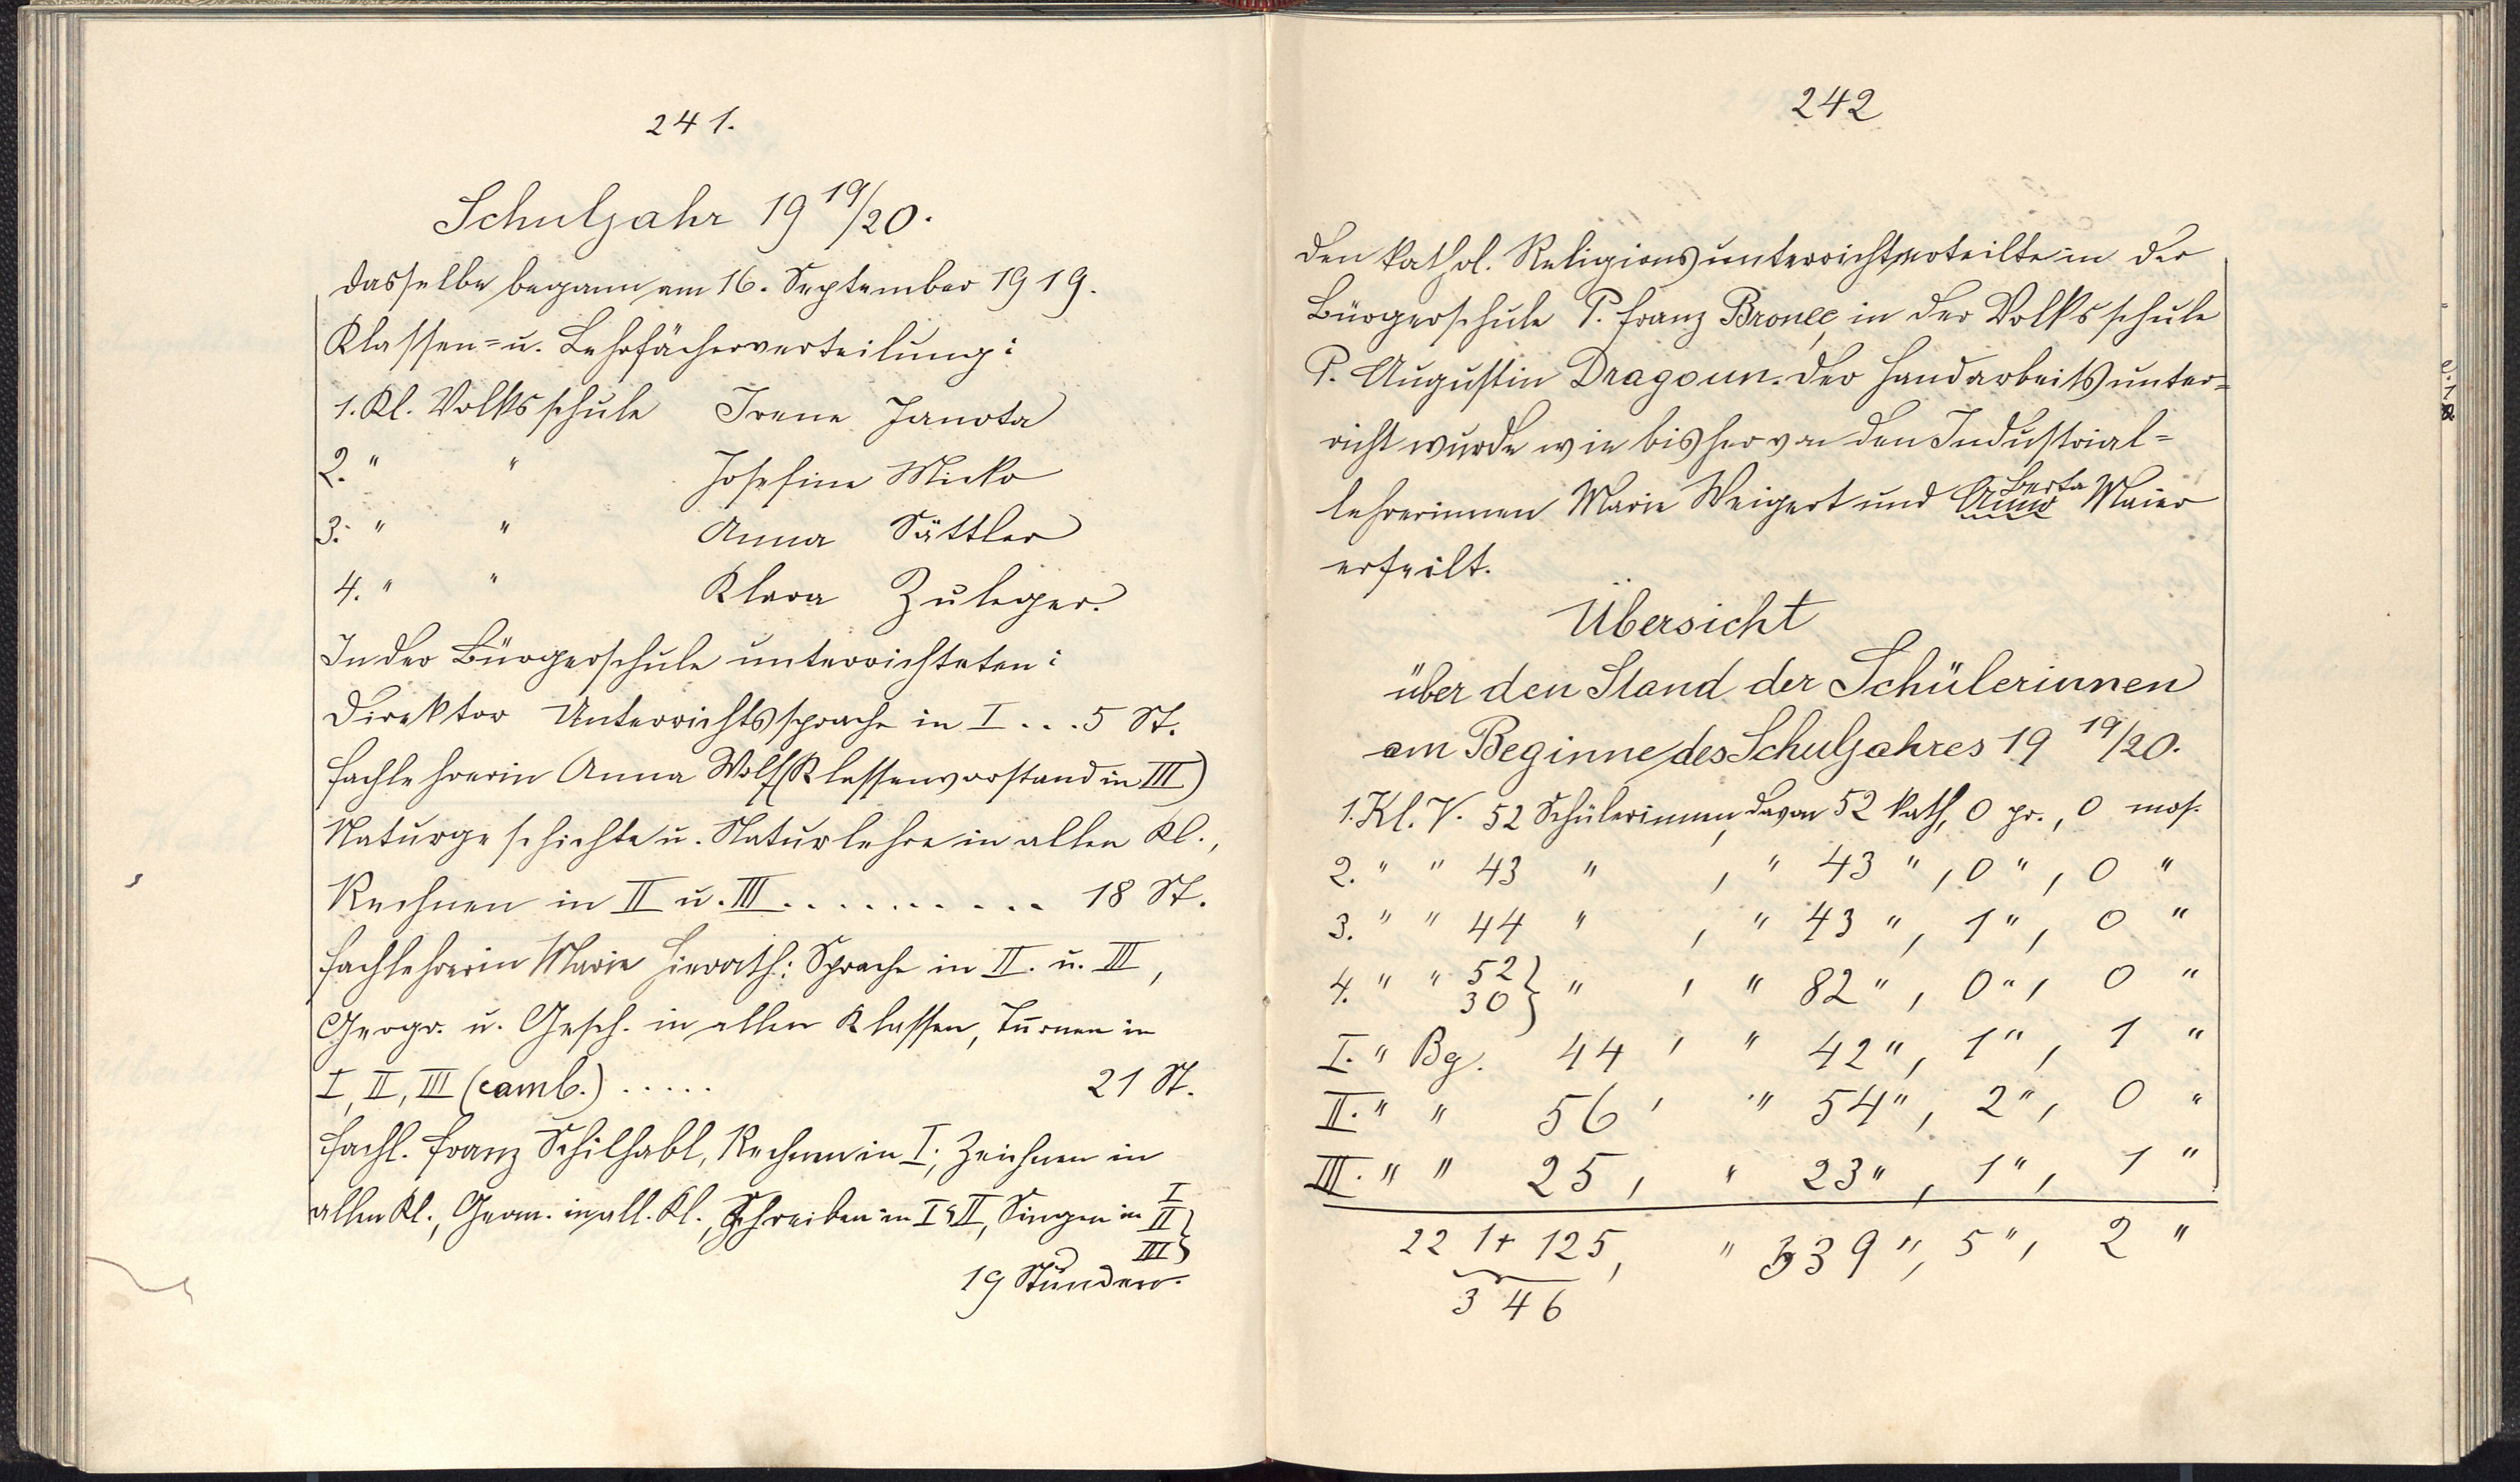 241.
Schuljahr 19 19/20.
Dasselbe begann am 16. September 1919.
Klassen- u. Lehrfächerverteilung:
1. Kl. Volksschule Irene Janota
2. " " Josefine Micko
3. " " Anna Sättler
4. " " Klara Zuleger.
In der Bürgerschule unterrichteten:
Direktor Unterrichtssprache in I . . . 5 St.
Fachlehrerin Anna Wolf (Klassenvorstand in III)
Naturgeschichte u. Naturlehre in allen Kl.,
Rechnen in II u. III . . . . . . . . . . 18 St.
Fachlehrerin Marie Hierath: Sprache in II. u. III,
Geogr. u. Gesch. in allen Klassen, Turnen in
I, II, III (comb.) . . . . . 21 St.
Fachl. Franz Schilhabl, Rechnen in I; Zeichnen in
allen Kl., Geom. in all. Kl., Schreiben in I u II, Singen in I
II
III }
19 Stunden.
242
Den kathol. Religionsunterricht erteilte in der
Bürgerschule P. Franz Bronec, in der Volksschule
P. Augustin Dragoun. Der Handarbeitsunter-
richt wurde wie bisher von den Industrial-
lehrerinnen Marie Weigert und Anna Berta Maier
erteilt.
Übersicht
über den Stand der Schülerinnen
am Beginne des Schuljahres 19 19/20.
1. Kl. V. 52 Schülerinnen, davon 52 kath, 0 pr., 0 mos.
2. " " 43 " , " 43 " , 0 " , 0 "
3. " " 44 " , " 43 " , 1 " , 0 "
4. " " 52
30 } " , " 82 " , 0 " , 0 "
I. " Bg. 44 , " 42 " , 1 " , 1 "
II. " " 56 , " 54 " , 2 " , 0 "
III. " " 25 , " 23 " , 1 " , 1 "
221 + 125, " 339 " , 5 " , 2 "
346